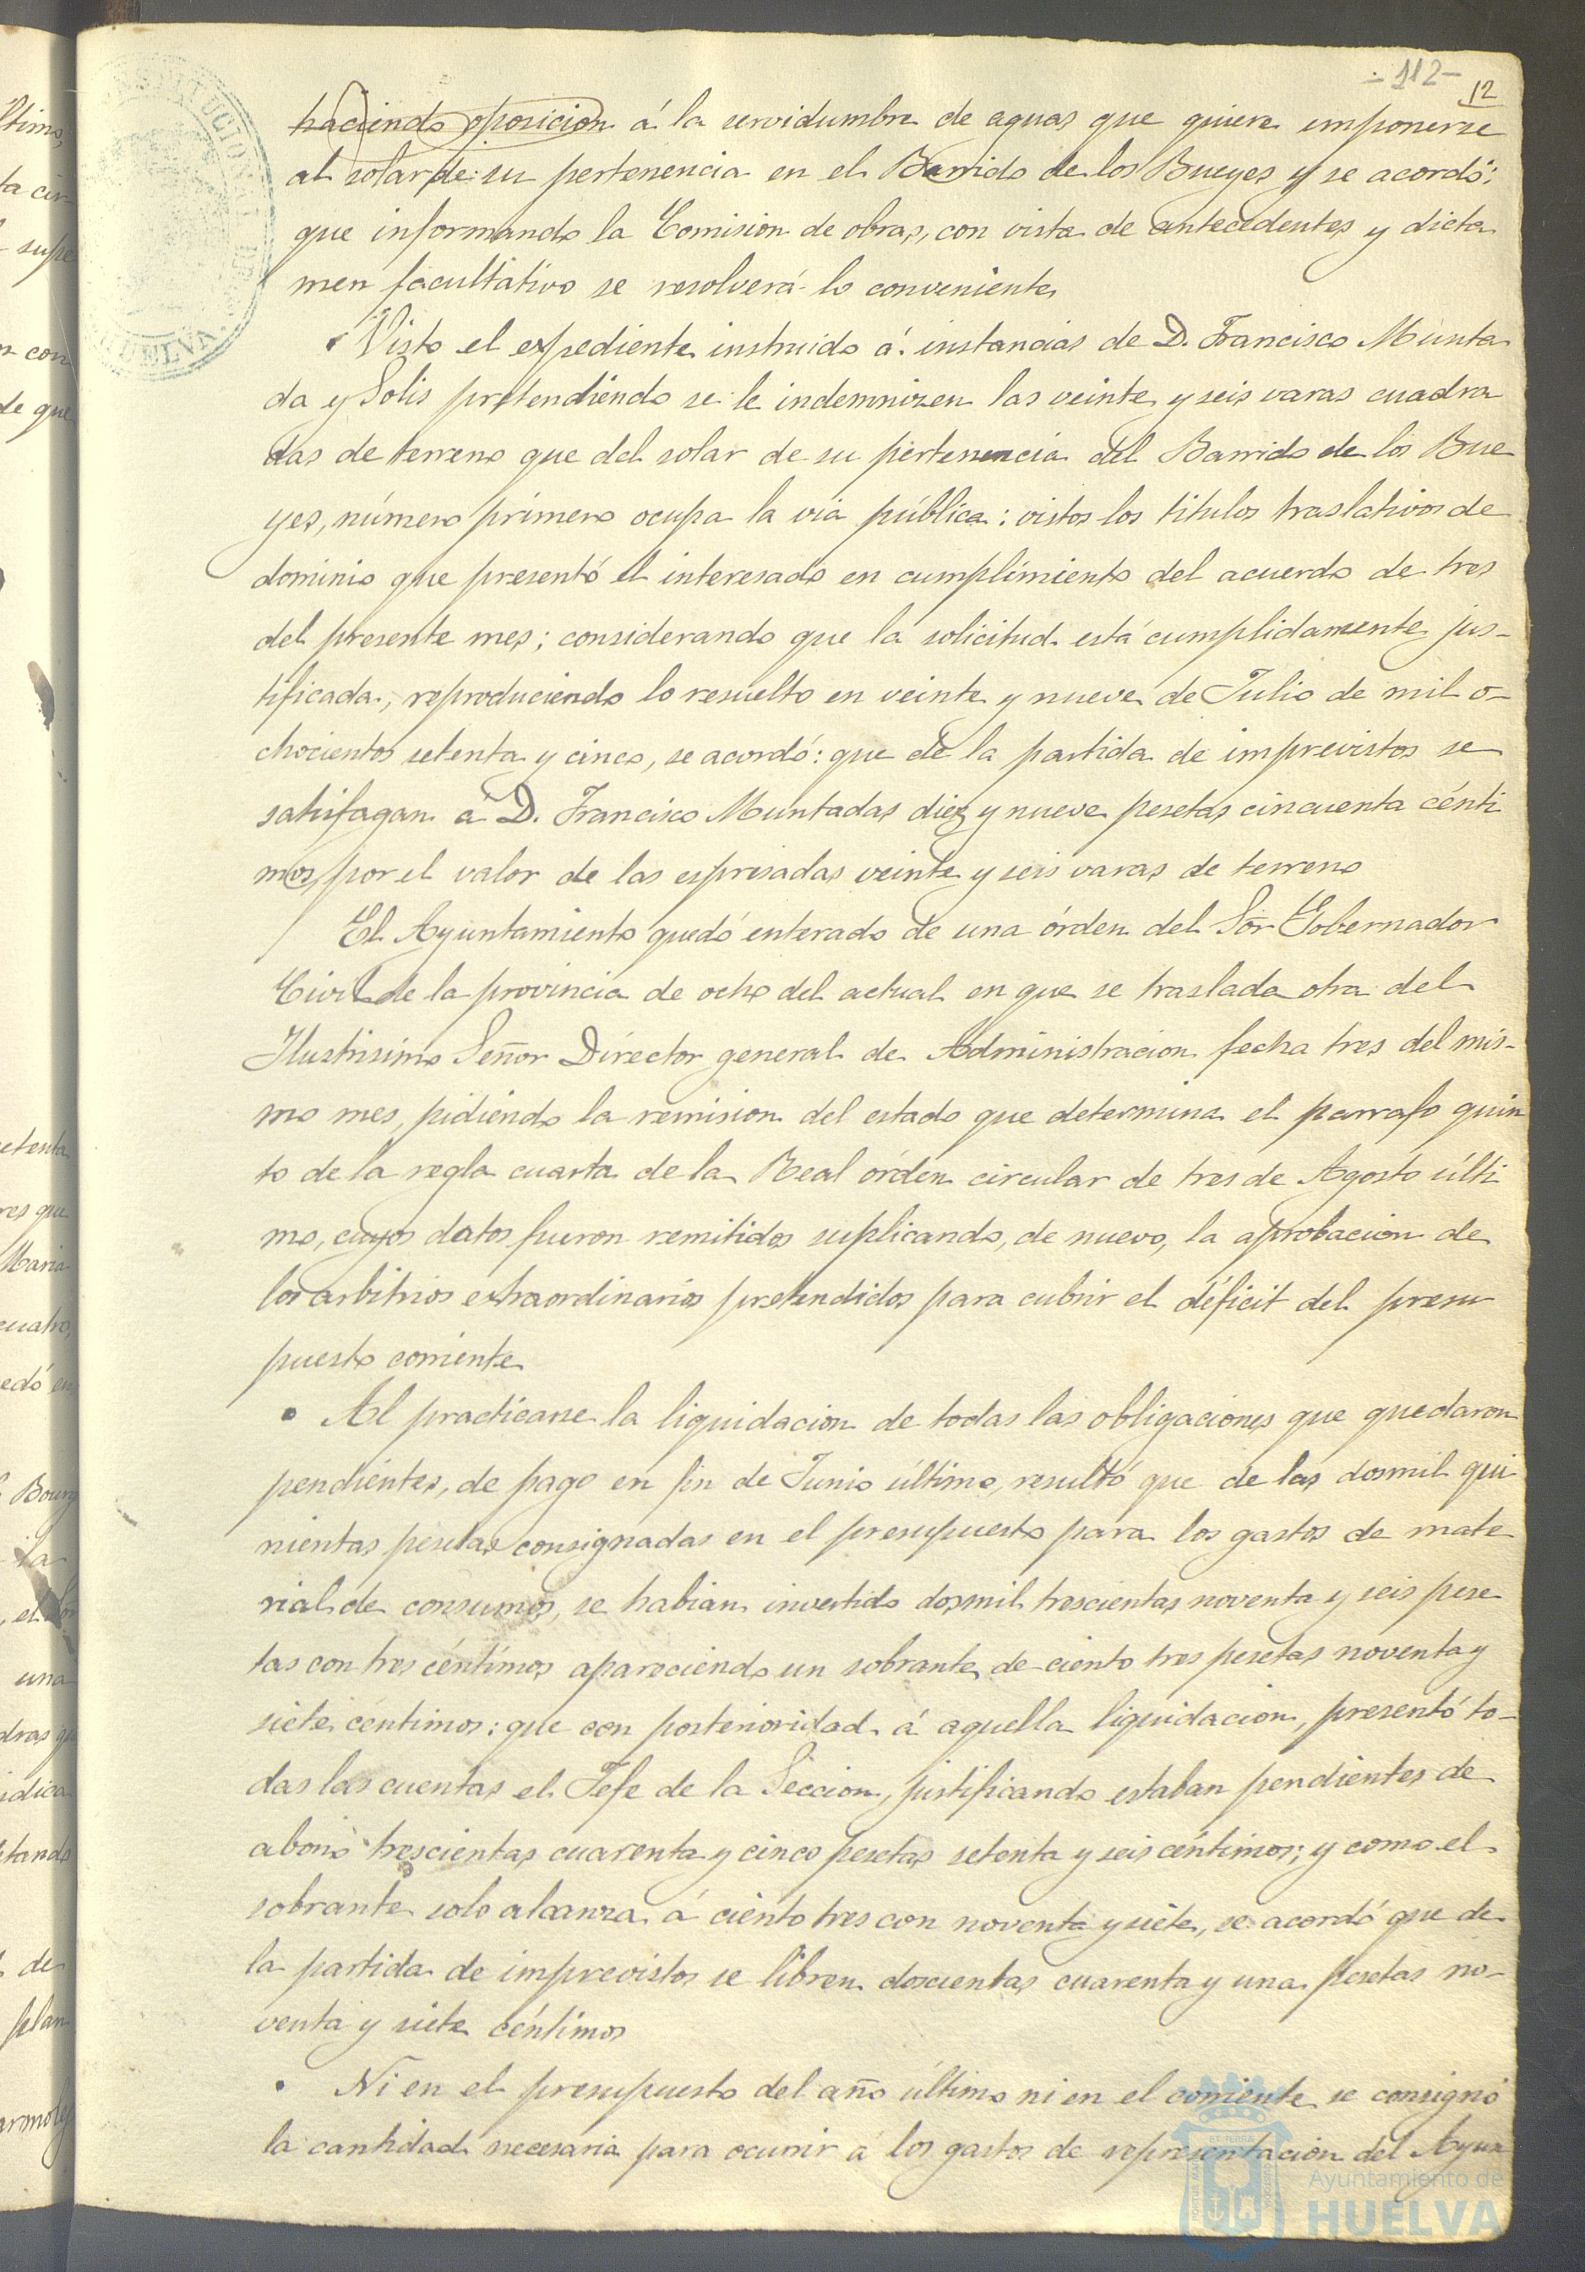 - 112 -
12
haciendo oposicion á la servidumbre de aguas que quiere imponerse
al solar de su pertenencia en el Barrido de los Bueyes y se acordó:
que informando la Comision de obras, con vista de antecedentes y dicta
men facultativo se resolverá lo conveniente
Visto el expediente instruido á instancias de D. Francisco Munta
da y Solis pretendiendo se le indemnizen las veinte y seis varas cuadra
das de terreno que del solar de su pertenencia del Barrido de los Bue
yes, número primero ocupa la via pública: vistos los titulos traslativos de
dominio que presentó el interesado en cumplimiento del acuerdo de tres
del presente mes; considerando que la solicitud está cumplidamente jus-
tificada, reproduciendo lo resuelto en veinte y nueve de Julio de mil o-
chocientos setenta y cinco, se acordó: que de la partida de imprevistos se
satisfagan á D. Francisco Muntadas diez y nueve pesetas cincuenta cénti
mos por el valor de las espresadas veinte y seis varas de terreno
El Ayuntamiento quedó enterado de una órden del Sōr Gobernador
Civil de la provincia de ocho del actual en que se traslada otra del
Ilustrisimo Señor Director general de Administracion fecha tres del mis-
mo mes, pidiendo la remision del estado que determina el parrafo quin
to de la regla cuarta de la Real órden circular de tres de Agosto últi
mo, cuyos datos fueron remitidos suplicando, de nuevo, la aprobacion de
los arbitrios extraordinarios pretendidos para cubrir el déficit del presu
puesto corriente
Al practicarse la liquidacion de todas las obligaciones que quedaron
pendientes, de pago en fin de Junio último, resultó que de las dosmil qui
nientas pesetas consignadas en el presupuesto para los gastos de mate
rial de consumos, se habian invertido dosmil trescientas noventa y seis pese
tas con tres céntimos apareciendo un sobrante de ciento tres pesetas noventa y
siete céntimos: que con posterioridad á aquella liquidacion, presentó to-
das las cuentas el Jefe de la Seccion, justificando estaban pendientes de
abono trescientas cuarenta y cinco pesetas setenta y seis céntimos; y como el
sobrante solo alcanza á ciento tres con noventa y siete, se acordó que de
la partida de imprevistos se libren doscientas cuarenta y una pesetas no-
venta y siete céntimos
Ni en el presupuesto del año último ni en el corriente se consignó
la cantidad necesaria para ocurrir á los gastos de representacion del Ayun
Ayuntamiento de
HUELVA